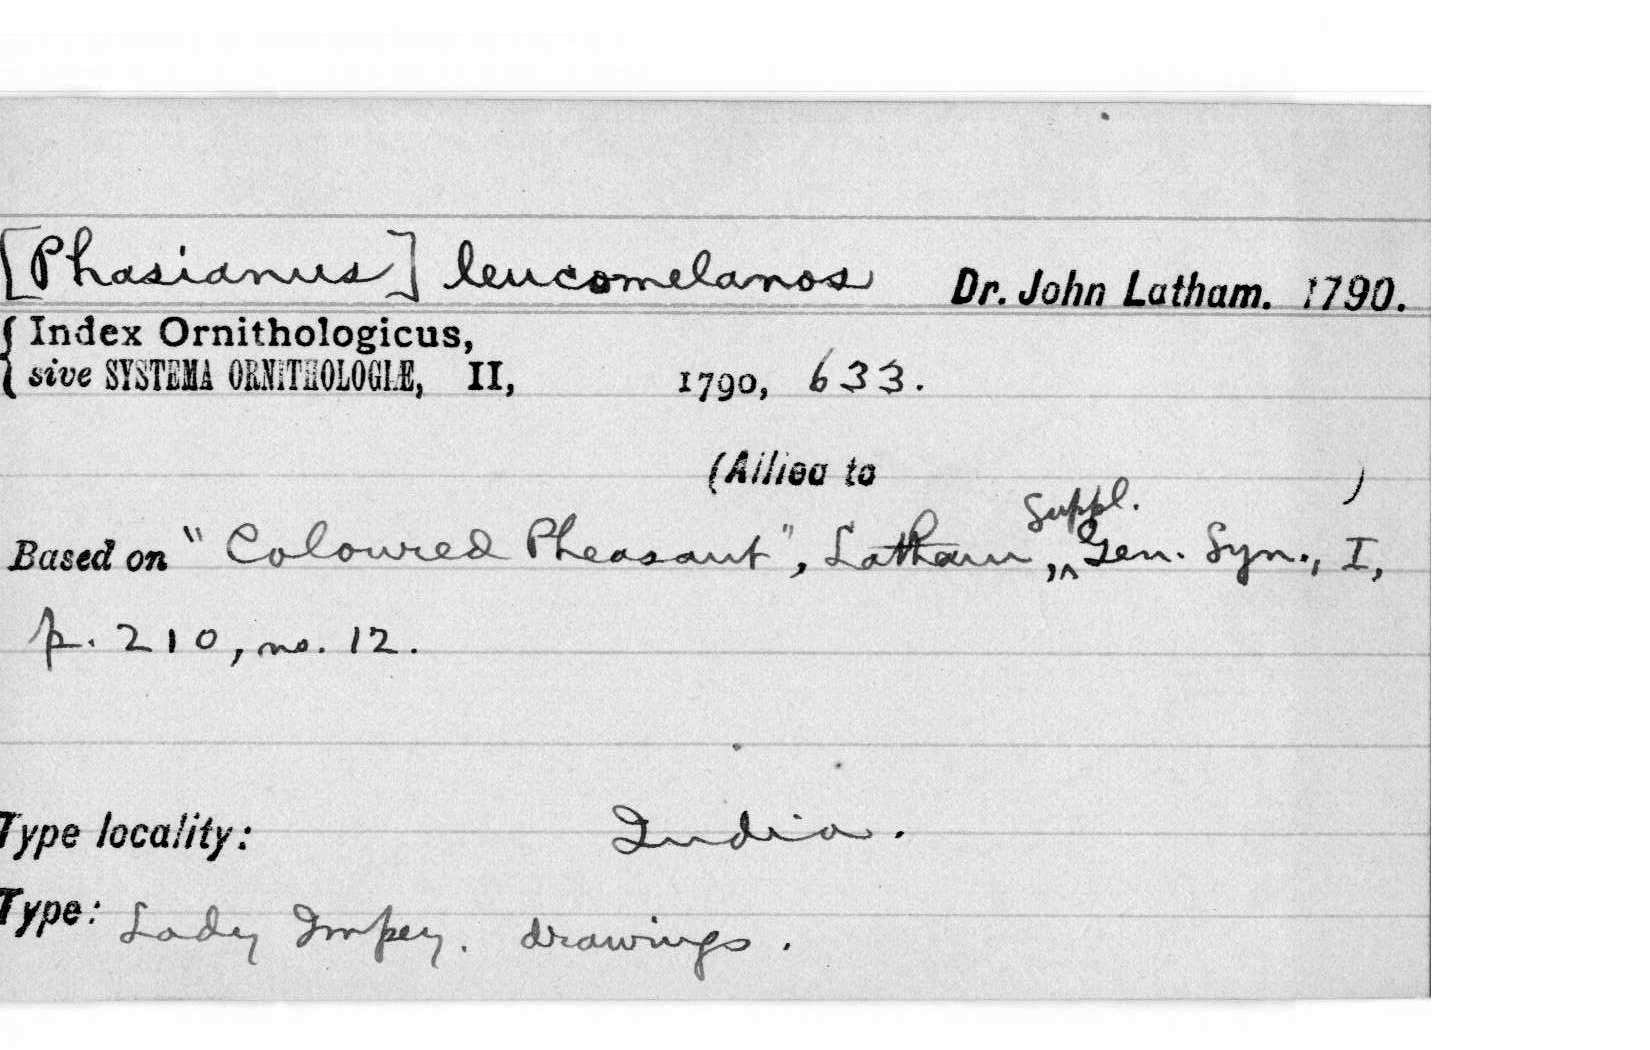 [Phasianus] leucomelanos Dr. John Latham. 1790.
{Index Ornithologicus,
sive SYSTEMA ORNITHOLOGIÆ, II, 1790, 633.
(Allied to )
Based on "Coloured Pheasant", Latham, ^Suppl. Gen. Syn., I,
p. 210, no. 12.
Type locality: India.
Type: Lady Impey. drawings.